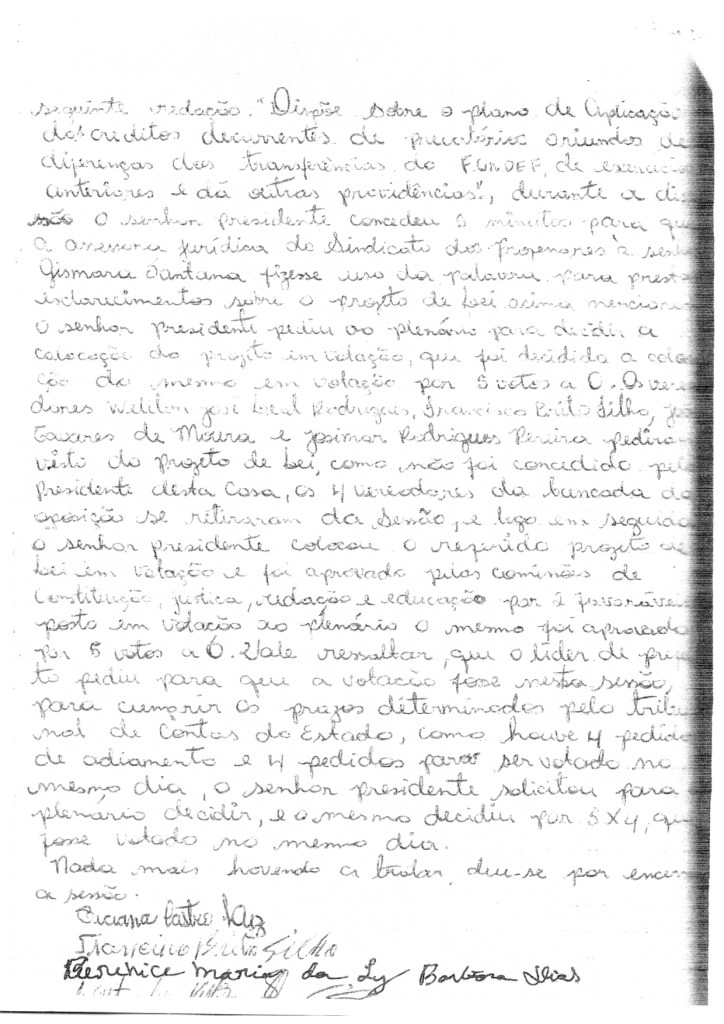 seguinte redação. "Dispõe sobre o plano de Aplicação
dos creditos decurrentes de precatórios oriundos de
diferenças das transferências do FUNDEF, de exercic
anteriores e dá outras providências", durante a dis
são o senhor presidente concedeu 5 minutos para que
a assessora jurídica do Sindicato dos professores a senh
Gismara Santana fizesse uso da palavra para presta
esclarecimentos sobre o projeto de Lei acima menciona
o senhor presidente pediu ao plenário para decidir a
colocação do projeto em votação, que foi decidida a colo
ção do mesmo em votação por 5 votos a 0. Os vere
dores Weldon José Leul Rodrigues, Francisco Brito Filho, Jo
Tavares de Moura e Josimar Rodrigues Pereira pediram
visto do projeto de Lei, como não foi concedido pelo
presidente desta Casa, os 4 vereadores da bancada da
oposição se retiraram da Sessão, e logo em seguida
o senhor presidente colocou o referido projeto de
Lei em votação e foi aprovado pelas comissões de
Constituição, justica, redação e educação por 2 favoráveis
posto em votação ao plenário o mesmo foi aprovado
por 5 votos a 0. Vale ressaltar, que o líder de prefe
to pediu para que a votação fosse nesta sessão,
para cumprir os prazos determinados pelo tribu
nal de Contas do Estado, como houve 4 pedido
de adiamento e 4 pedidos para ser votado no
mesmo dia, o senhor presidente solicitou para
plenário decidir, e o mesmo decidiu por 5 X 4, qu
fosse votado no mesmo dia.
Nada mais hovendo a tratar, deu-se por encerr
a sessão.
Luciana Castro
Francisco Brito Filho
Berenice Maria da Luz Barbosa Dias